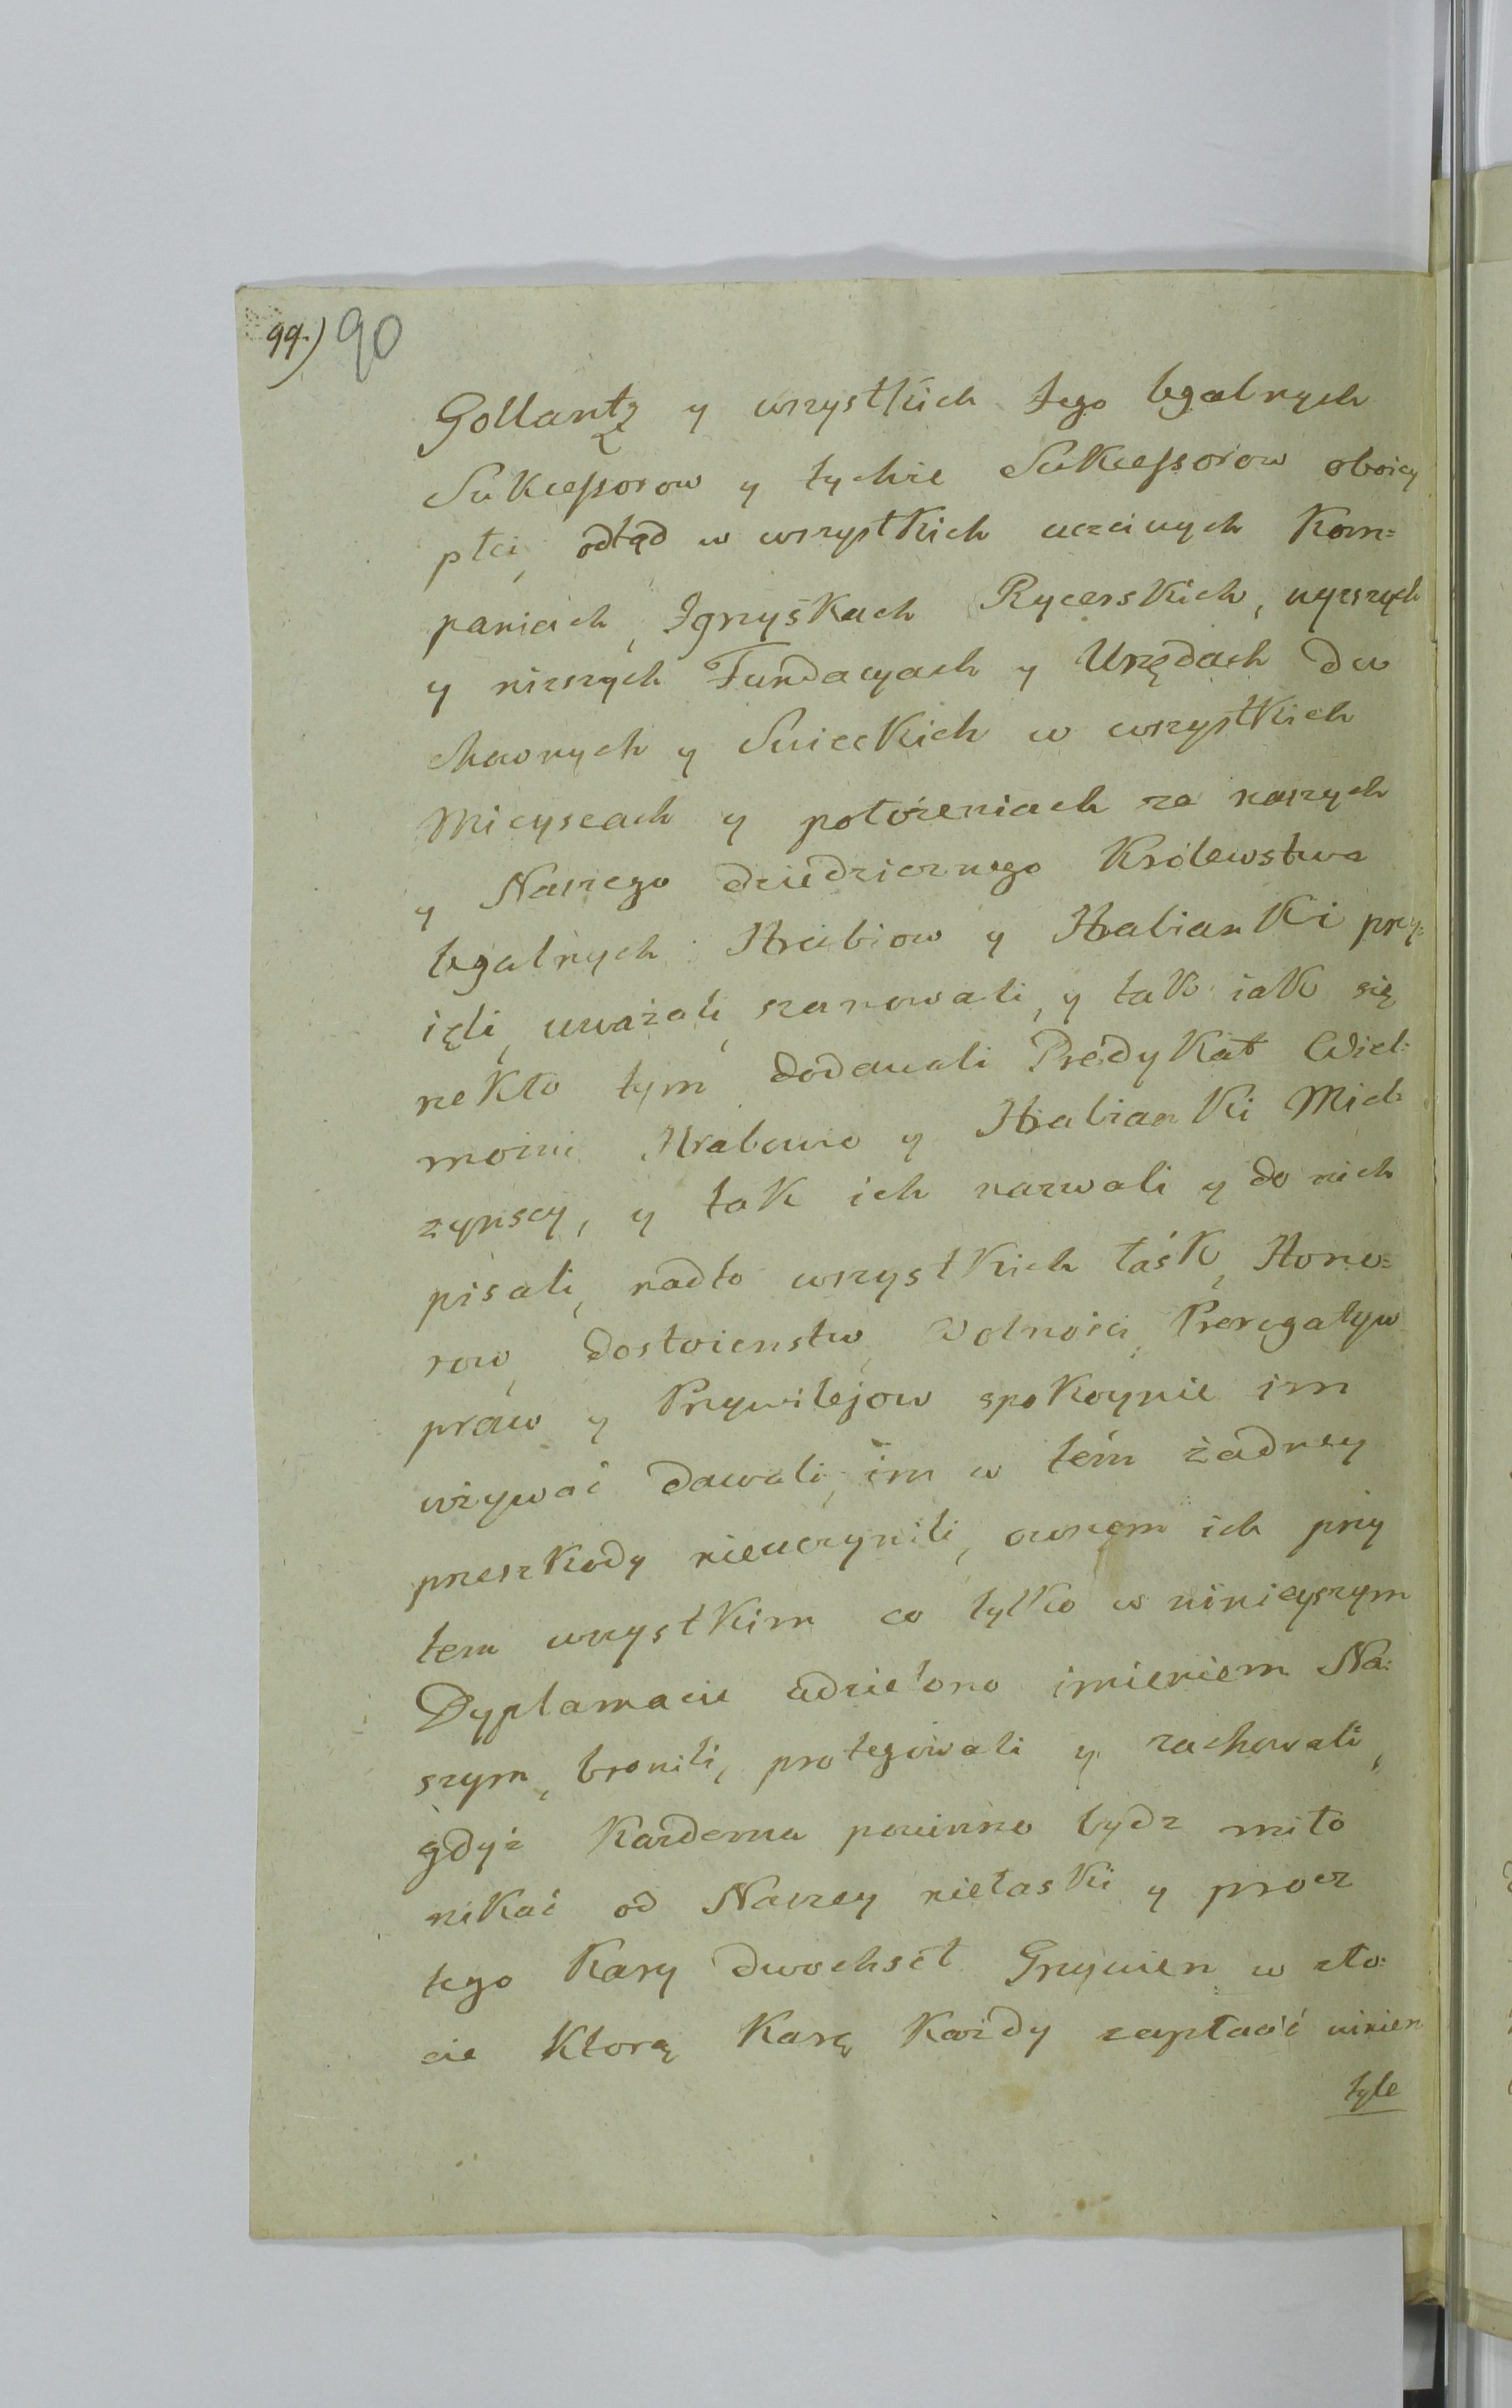 99.) 90
Gollantz y wszystkich Jego legalnych
Sukcessorow y tychże Sukcessorow oboiey
płci, odtąd w wszystkich uczciwych Kom=
paniach, Igrzyskach Rycerskich, wyższych
y niższych Fundacyach y Urzędach du
chownych y Swieckich w wszystkich
Mieyscach y położeniach za naszych
y Naszego dziedzicznego Królewstwa
legalnych Hrabiow y Hrabianki przy=
ięli, uważali, szanowali, y tak iak się
rekło tym dodawali Predykat Wiel=
możni Hrabowie y Hrabianki Miel=
zynscy, y tak ich nazwali y do nich
pisali, nadto wszystkich łask, Hono=
row, dostoienstw, Wolności, Prerogatyw
praw y Przywilejow spokoynie im
używać dawali, im w tém żadney
przeszkody nieuczynili, owszem ich przy
tem wszystkim co tylko w ninieyszym
Dyplamacie udzielono imieniem Na=
szym, bronili, protegowali y zachowali,
gdyż Kazdemu powinno bydz miło
nikać od Naszey niełaski y procz
tego Kary dwochset Grzywien w zło=
cie Ktorą Karę Każdy zapłacić winien
tyle